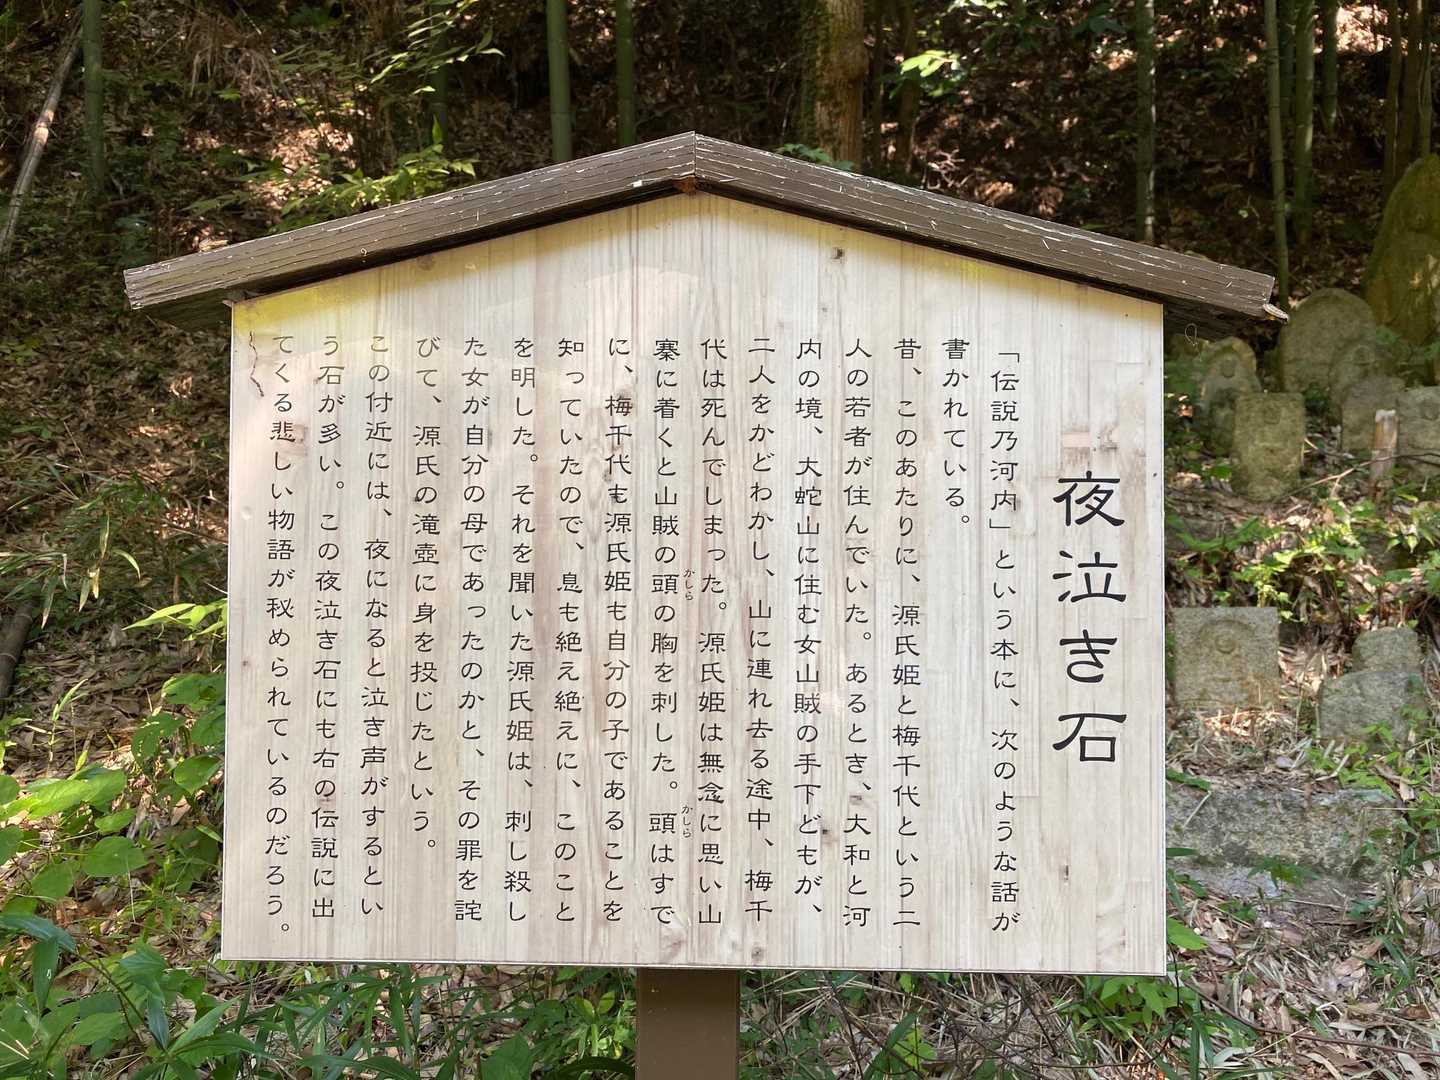 夜泣き石
「伝説乃河内」という本に、次のような話が
書かれている。
昔、このあたりに、源氏姫と梅千代という二
人の若者が住んでいた。あるとき、大和と河
内の境、大蛇山に住む女山賊の手下どもが、
二人をかどわかし、山に連れ去る途中、梅千
代は死んでしまった。源氏姫は無念に思い山
寨に着くと山賊の頭の胸を刺した。頭はすで
かしら
かしら
に、梅千代も源氏姫も自分の子であることを
知っていたので、息も絶え絶えに、このこと
を明した。それを聞いた源氏姫は、刺し殺し
た女が自分の母であったのかと、その罪を詫
びて、源氏の滝壺に身を投じたという。
この付近には、夜になると泣き声がするとい
う石が多い。この夜泣き石にも右の伝説に出
てくる悲しい物語が秘められているのだろう。